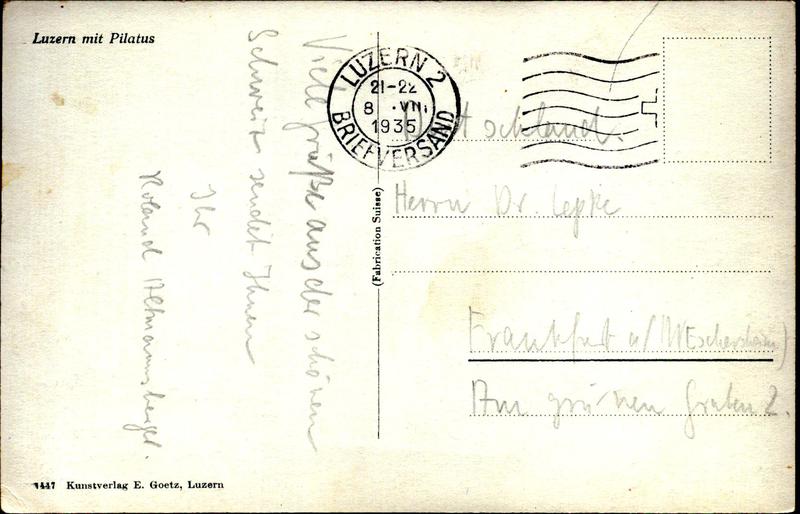 Luzern mit Pilatus
Viele Grüße aus der schönen
Schweiz sendet Ihnen
Ihr
Roland
1447 Kunstverlag E. Goetz, Luzern
(Fabrication Suisse)
LUZERN 2
21-22
8 . VII.
1935
BRIEFVERSAND
Deutschland.
Herrn Dr. Lepke
Frankfurt a/
Am grünen Graben 2.